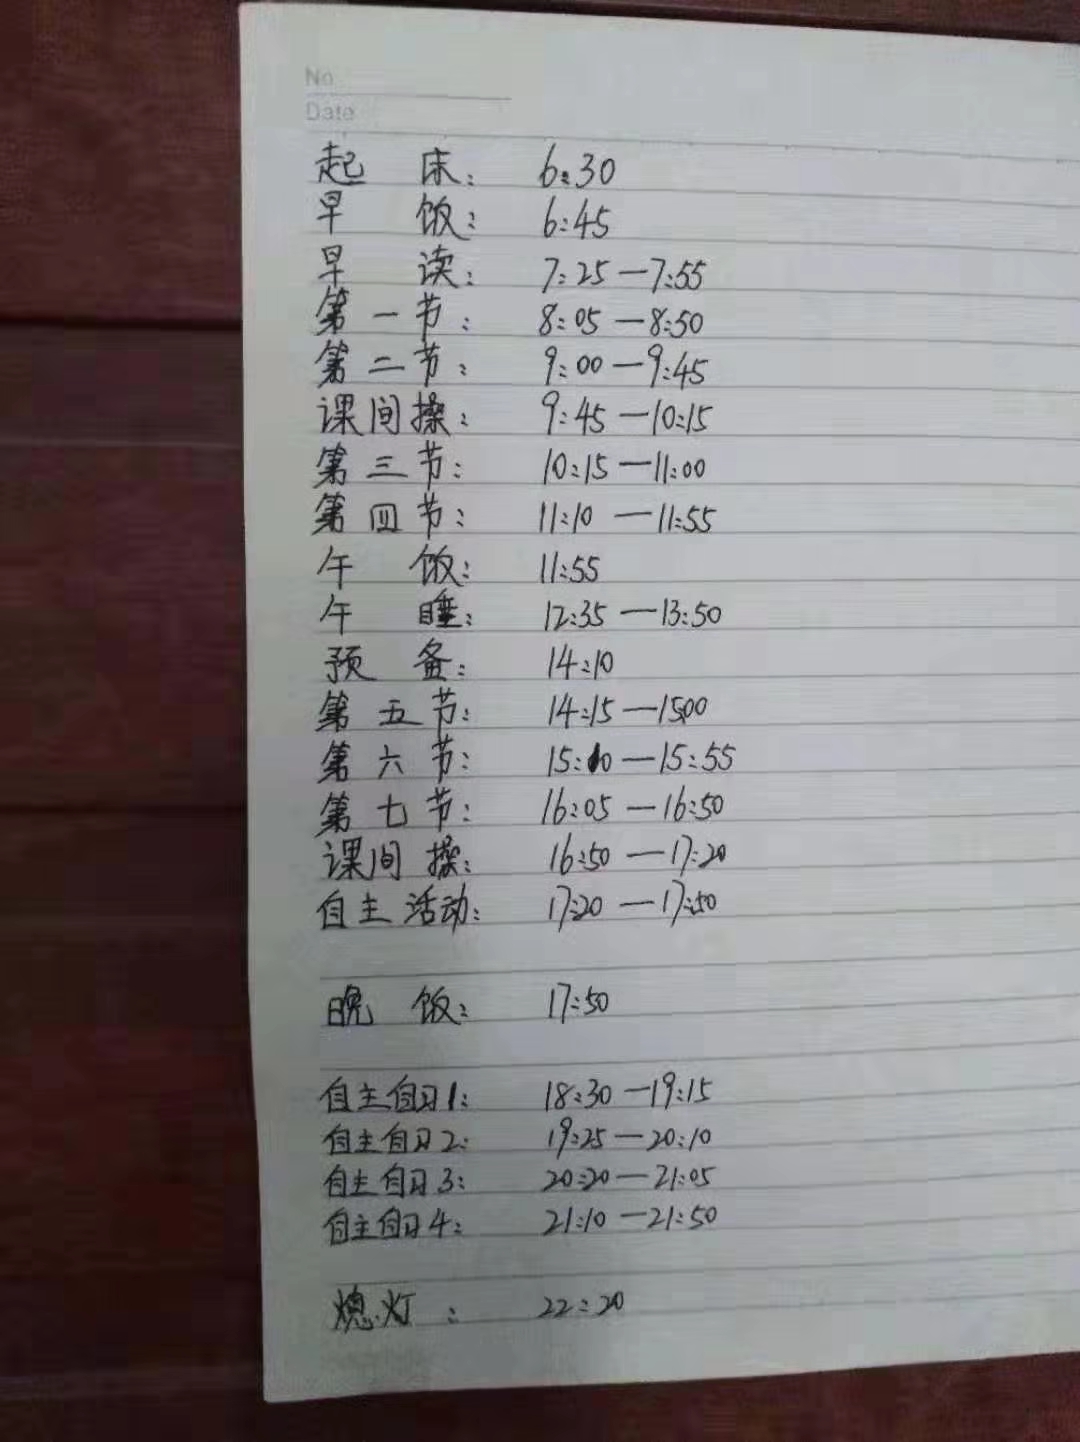 No
Date
起 床: 6:30
早 饭: 6:45
早 读: 7:25—7:55
第一节: 8:05—8:50
第二节: 9:00—9:45
课间操: 9:45—10:15
第三节: 10:15—11:00
第四节: 11:10—11:55
午 饭: 11:55
午 睡: 12:35—13:50
预 备: 14:10
第五节: 14:15—15:00
第六节: 15:10—15:55
第七节: 16:05—16:50
课间操: 16:50—17:20
自主活动: 17:20—17:50
晚 饭: 17:50
自主自习1: 18:30—19:15
自主自习2: 19:25—20:10
自主自习3: 20:20—21:05
自主自习4: 21:10—21:50
熄灯: 22:20